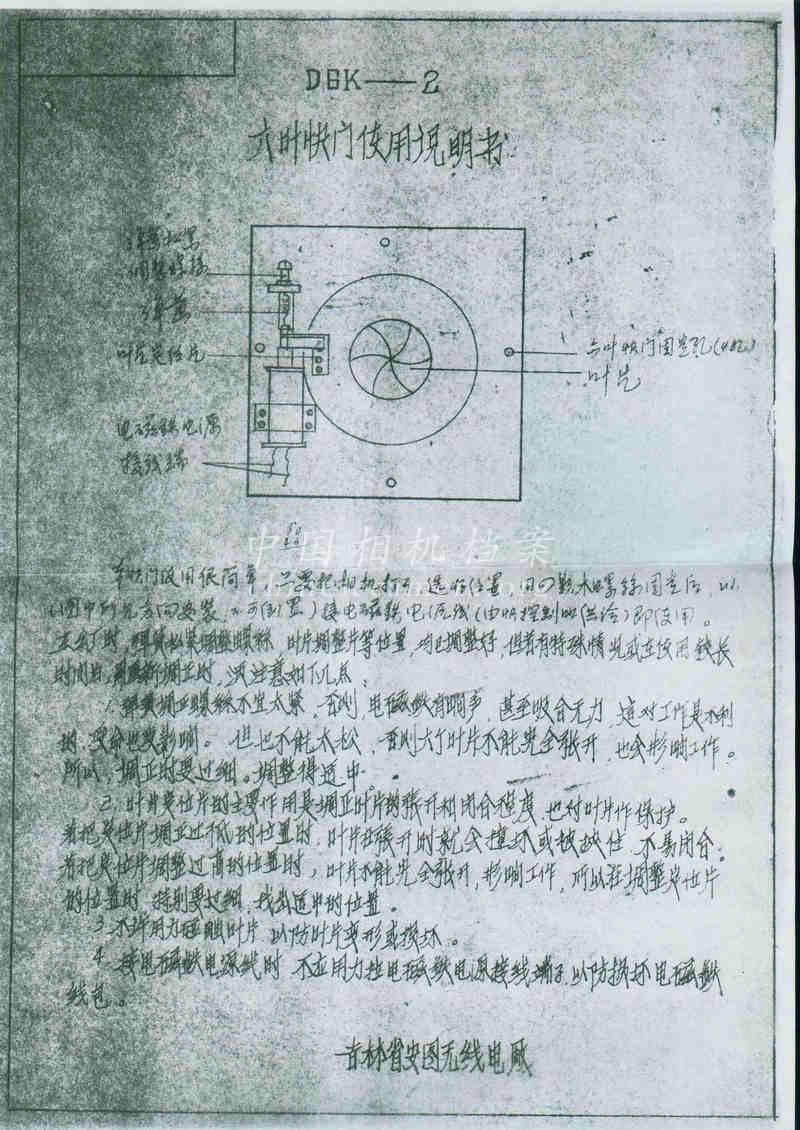 DGK——2
六叶快门使用说明书
弹簧松紧
调整螺絲
弹簧
叶片定位片
电磁铁电源
接线端
六叶快门固定孔(4孔)
叶片
图
中国相机档案
本快门使用很简单,只要把相机打开,选好位置,用四颗木螺絲固定后,以
(图中所示方向安装,不可倒置)接电磁铁电源线(由 控制 供给)即使用。
在出厂时,弹簧松紧调整螺絲,叶片调整片等位置,均已调整好,但若有特殊情况或在使用较长
时间后,重新调正时,须注意如下几点:
1. 弹簧调正螺絲不宜太紧,否则,电磁铁有响声,甚至吸合无力,这对工作是不利
的,寿命也受影响。但也不能太松,否则六个叶片不能完全张开,也会影响工作。
所以,调正时要过细。调整得适中.
2. 叶片定位片的主要作用是调正叶片的张开和闭合程度,也对叶片作保护。
若把定位片调正过低的位置时,叶片在张开时就会撞坏或被 住,不易闭合。
若把定位片调整过高的位置时,叶片不能完全张开,影响工作,所以在调整定位片
的位置时,特别要过细,找出适中的位置。
3. 不许用力碰触叶片,以防叶片变形或损坏。
4. 接电磁铁电源线时,不应用力拉电磁铁电源接线端子,以防损坏电磁铁
线包。
吉林省安图无线电厰